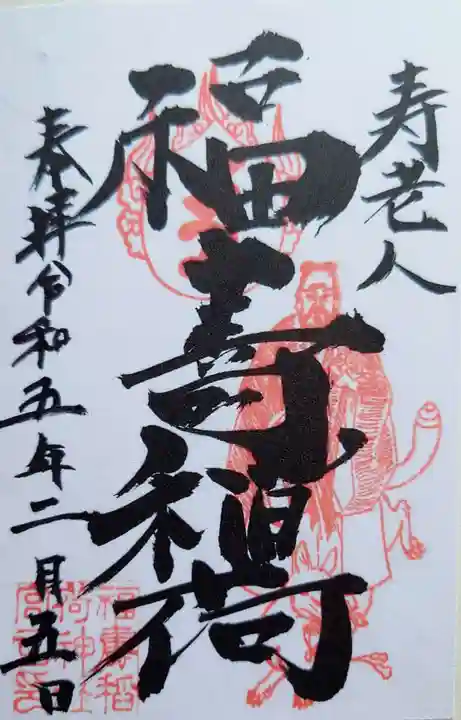 寿老人
福寿稲荷
奉拝令和五年二月五日
福寿稲
荷神社